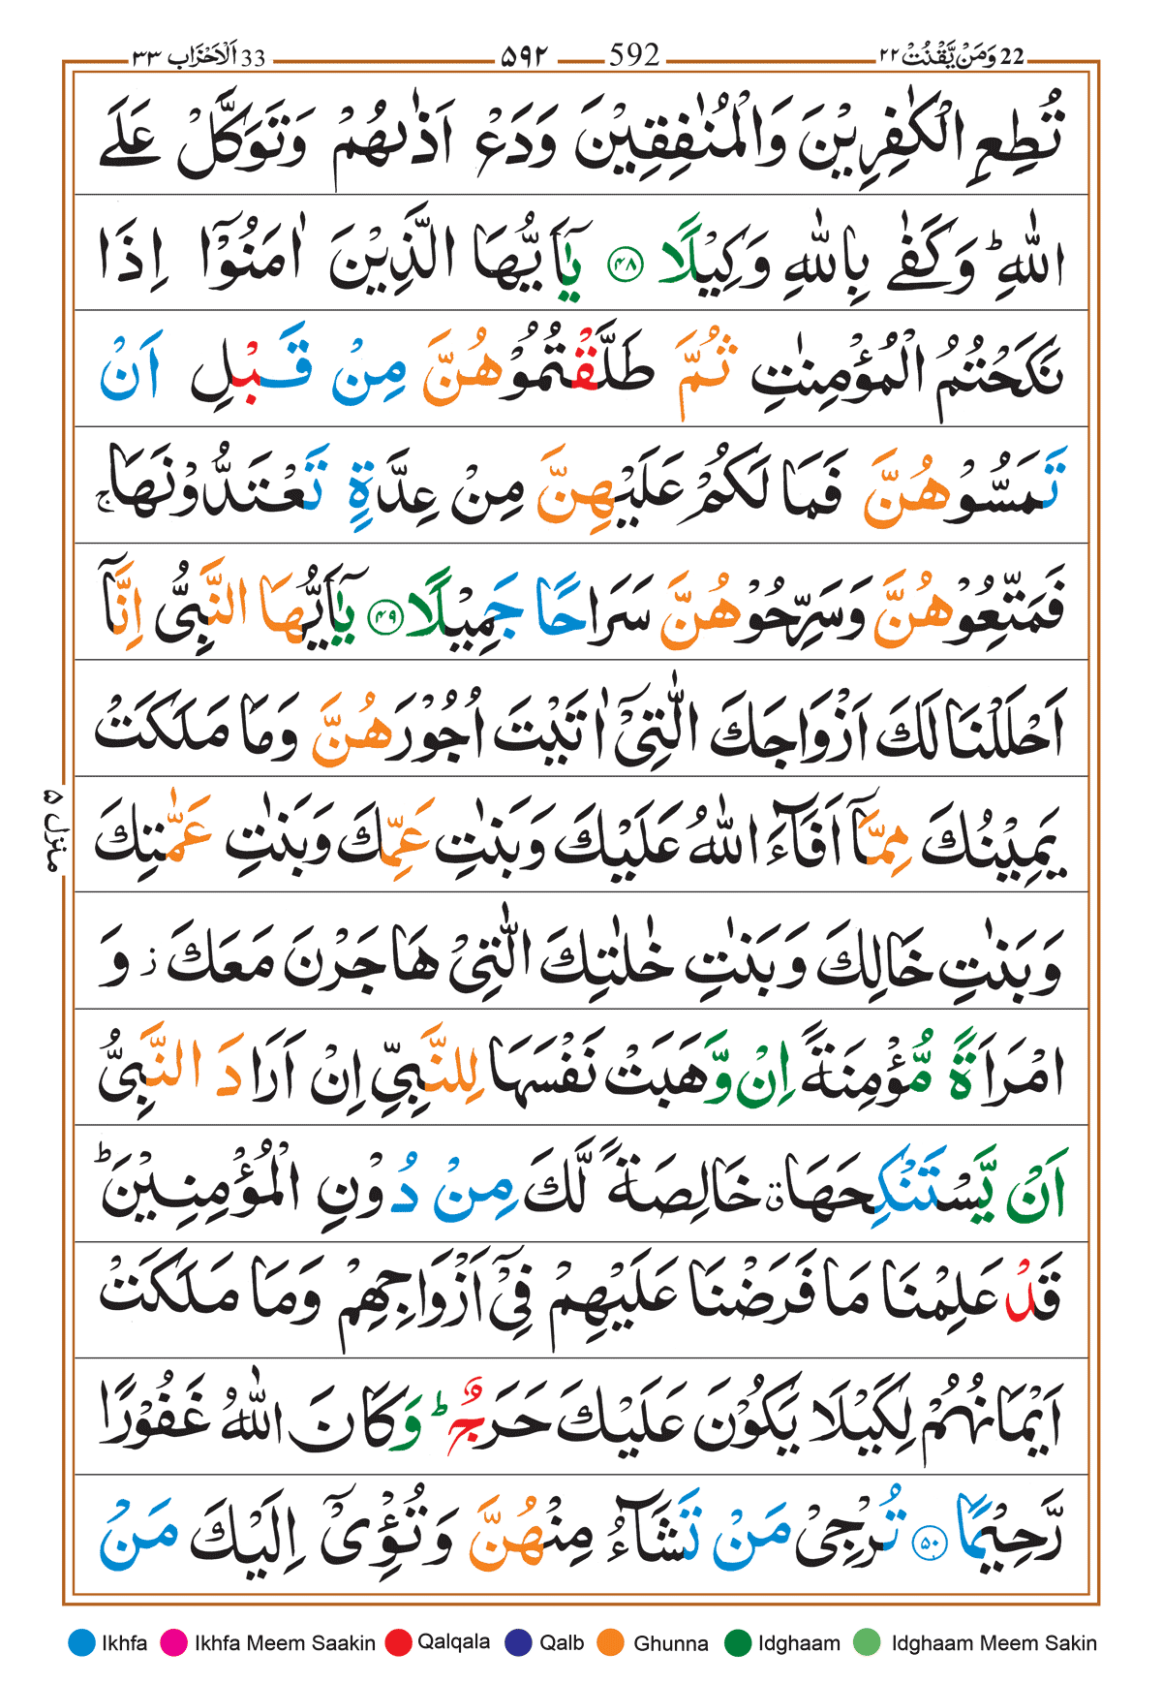 اَلْاَحْزَاب 33 ۳۳
592 ۵۹۲
22 وَمَنْ يَّقْنُتْ ۲۲
تُطِعِ الْكٰفِرِيْنَ وَالْمُنٰفِقِيْنَ وَدَعْ اَذٰىهُمْ وَتَوَكَّلْ عَلَى
اللّٰهِ ؕ وَكَفٰى بِاللّٰهِ وَكِيْلًا ۴۸ يٰۤاَيُّهَا الَّذِيْنَ اٰمَنُوْۤا اِذَا
نَكَحْتُمُ الْمُؤْمِنٰتِ ثُمَّ طَلَّقْتُمُوْهُنَّ مِنْ قَبْلِ اَنْ
تَمَسُّوْهُنَّ فَمَا لَكُمْ عَلَيْهِنَّ مِنْ عِدَّةٍ تَعْتَدُّوْنَهَا ۚ
فَمَتِّعُوْهُنَّ وَسَرِّحُوْهُنَّ سَرَاحًا جَمِيْلًا ۴۹ يٰۤاَيُّهَا النَّبِىُّ اِنَّاۤ
اَحْلَلْنَا لَكَ اَزْوَاجَكَ الّٰتِىْۤ اٰتَيْتَ اُجُوْرَهُنَّ وَمَا مَلَكَتْ
يَمِيْنُكَ مِمَّاۤ اَفَآءَ اللّٰهُ عَلَيْكَ وَبَنٰتِ عَمِّكَ وَبَنٰتِ عَمّٰتِكَ
وَبَنٰتِ خَالِكَ وَبَنٰتِ خٰلٰتِكَ الّٰتِىْ هَاجَرْنَ مَعَكَ ز وَ
امْرَاَةً مُّؤْمِنَةً اِنْ وَّهَبَتْ نَفْسَهَا لِلنَّبِىِّ اِنْ اَرَادَ النَّبِىُّ
اَنْ يَّسْتَنْكِحَهَا ق خَالِصَةً لَّكَ مِنْ دُوْنِ الْمُؤْمِنِيْنَ ؕ
قَدْ عَلِمْنَا مَا فَرَضْنَا عَلَيْهِمْ فِىْۤ اَزْوَاجِهِمْ وَمَا مَلَكَتْ
اَيْمَانُهُمْ لِكَيْلَا يَكُوْنَ عَلَيْكَ حَرَجٌ ؕ وَكَانَ اللّٰهُ غَفُوْرًا
رَّحِيْمًا ۵۰ تُرْجِىْ مَنْ تَشَآءُ مِنْهُنَّ وَتُـْٔوِىْۤ اِلَيْكَ مَنْ
منزل ۵
Ikhfa Ikhfa Meem Saakin Qalqala Qalb Ghunna Idghaam Idghaam Meem Sakin